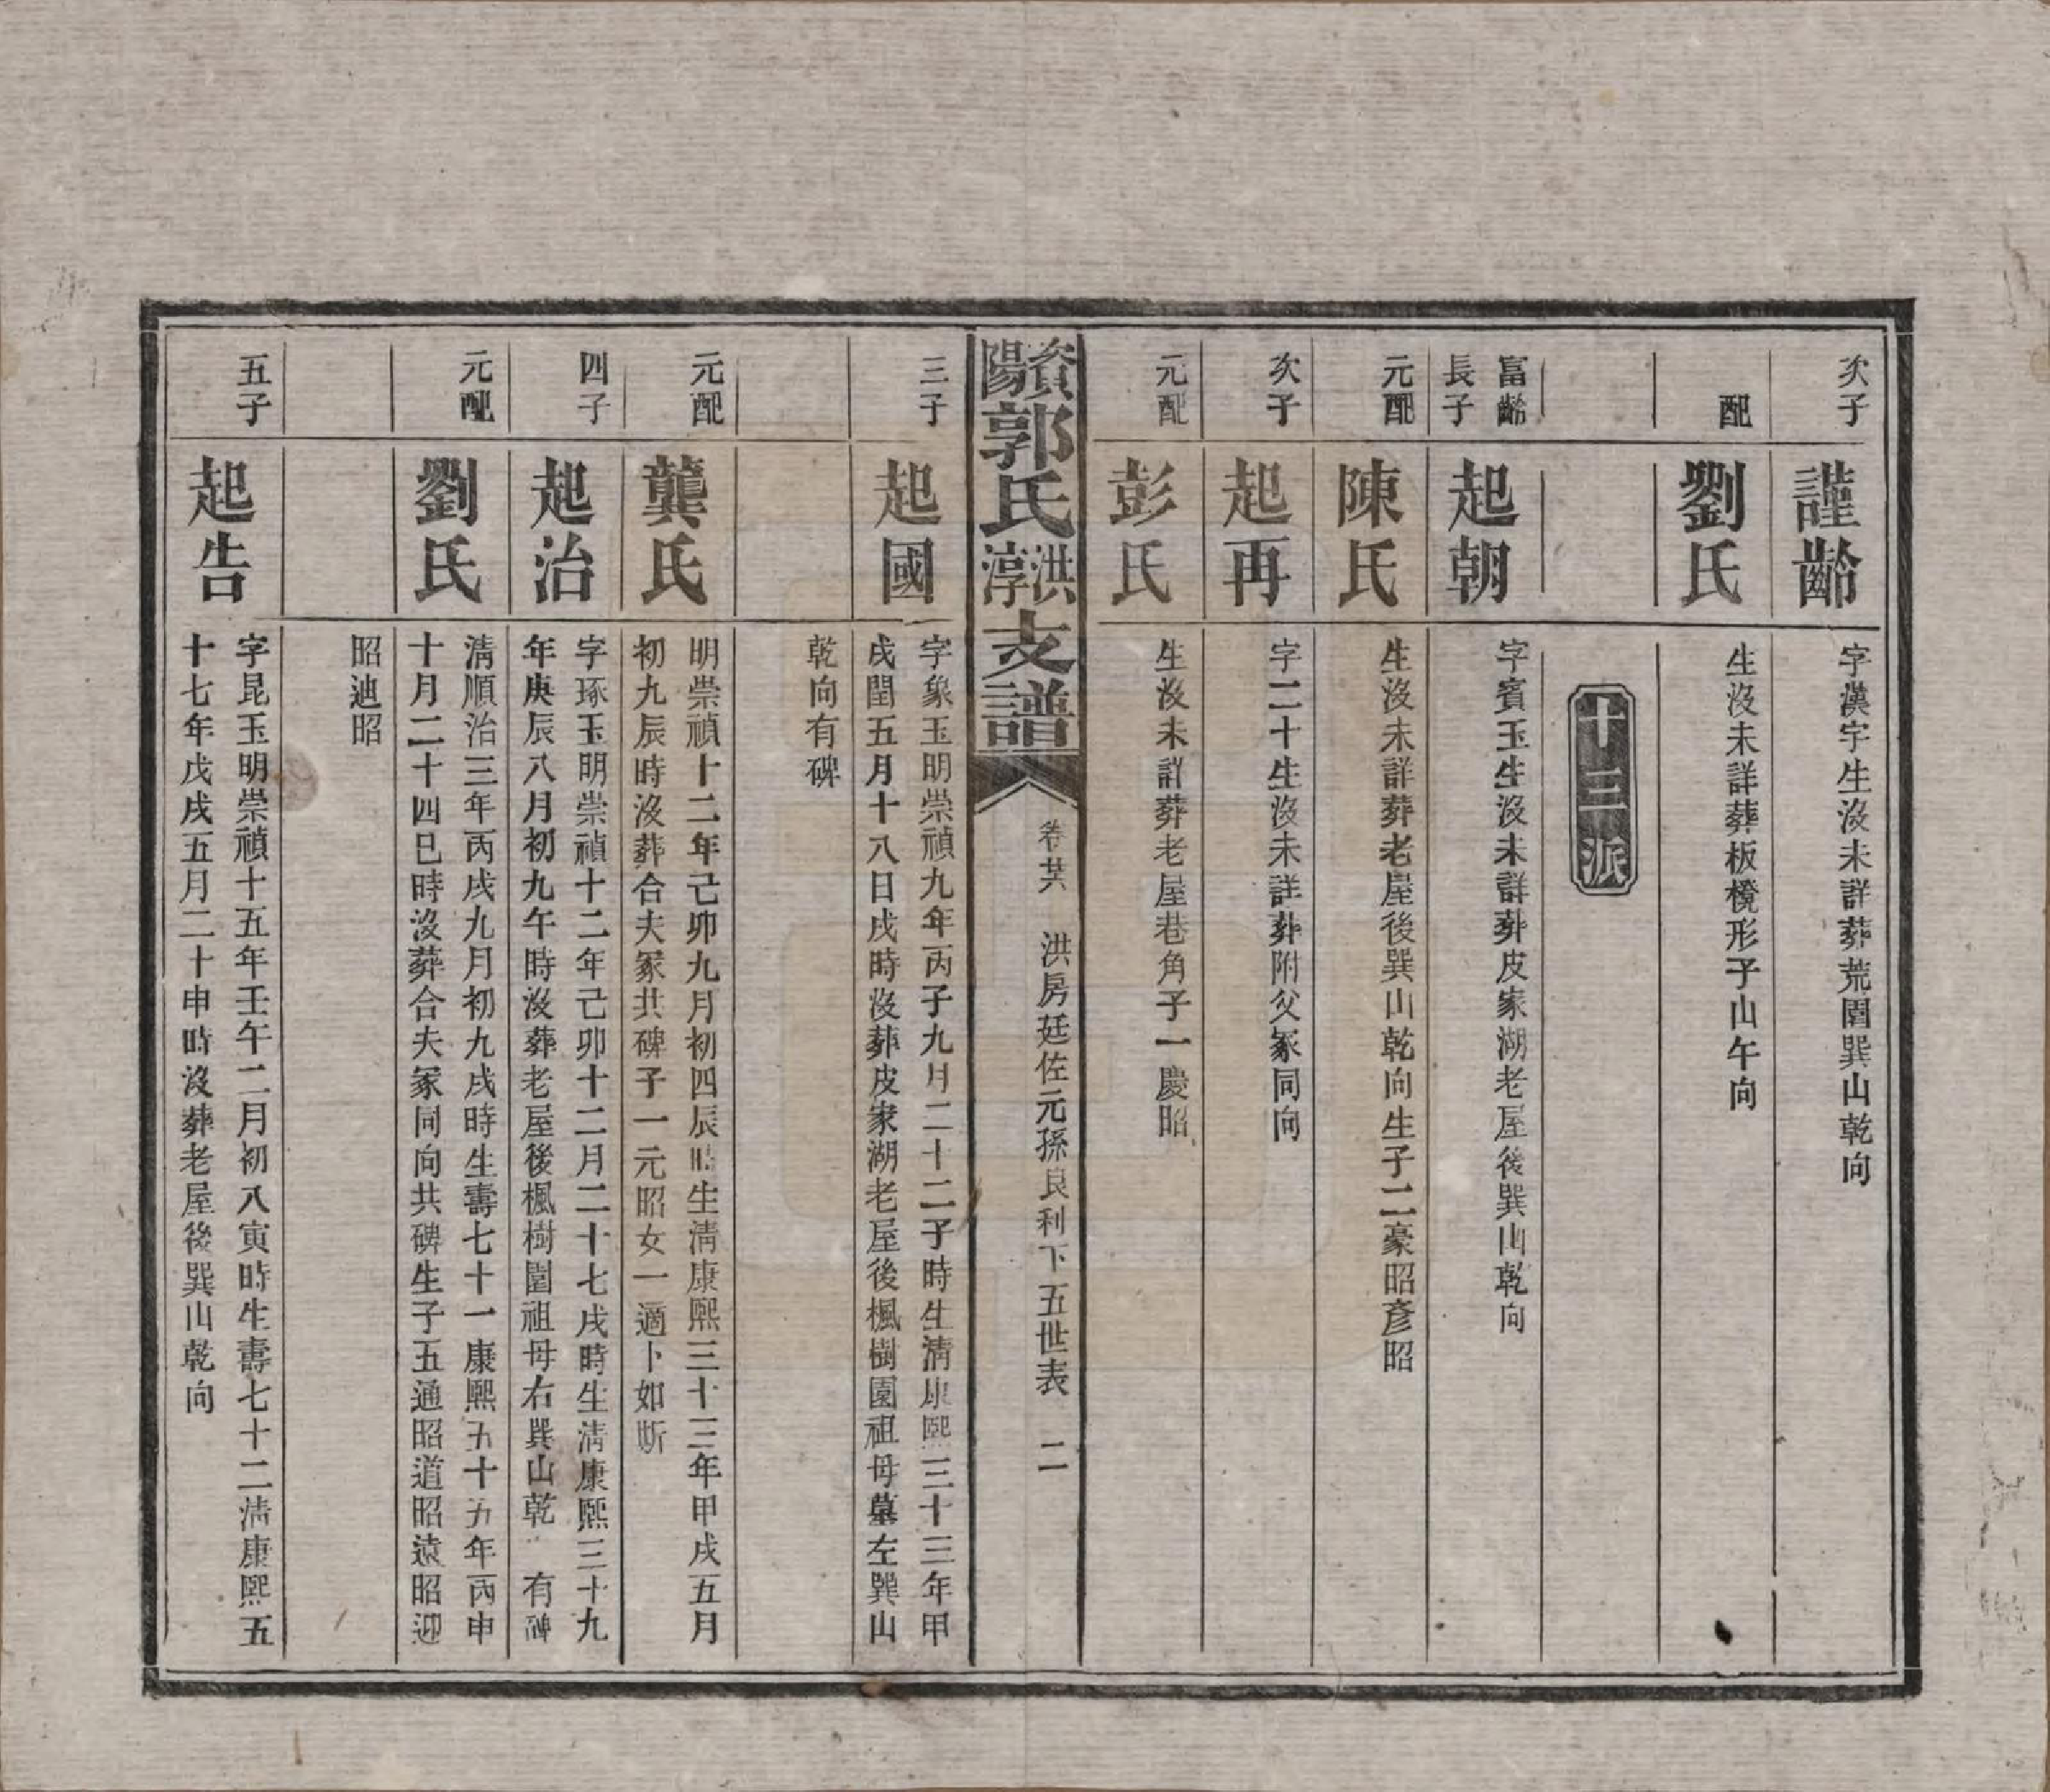 次子
謹齡
字漢字生沒未詳葬荒園巽山乾向
配
劉氏
生沒未詳葬板櫈形子山午向
十三派
富齡
長子
起朝
字賓玉生沒未詳葬皮家湖老屋後巽山乾向
元配
陳氏
生沒未詳葬老屋後巽山乾向生子二豪昭彥昭
次子
起再
字二十生沒未詳葬附父冢同向
元配
彭氏
生沒未詳葬老屋巷角子一慶昭
資陽郭氏洪淳支譜
卷廿六
洪房廷佐元孫良利下五世表
二
三子
起國
字象玉明崇禎九年丙子九月二十二子時生淸康熙三十三年甲
戌閏五月十八日戌時沒葬皮家湖老屋後楓樹園祖母墓左巽山
乾向有碑
元配
龔氏
明崇禎十二年己卯九月初四辰時生淸康熙三十三年甲戌五月
初九辰時沒葬合夫冢共碑子一元昭女一適卜如斯
四子
起治
字琢玉明崇禎十二年己卯十二月二十七戌時生淸康熙三十九
年庚辰八月初九午時沒葬老屋後楓樹園祖母右巽山乾 有碑
元配
劉氏
淸順治三年丙戌九月初九戌時生壽七十一康熙五十五年丙申
十月二十四巳時沒葬合夫冢同向共碑生子五通昭道昭遠昭迎
昭迪昭
五子
起告
字昆玉明崇禎十五年壬午二月初八寅時生壽七十二淸康熙五
十七年戊戌五月二十申時沒葬老屋後巽山乾向